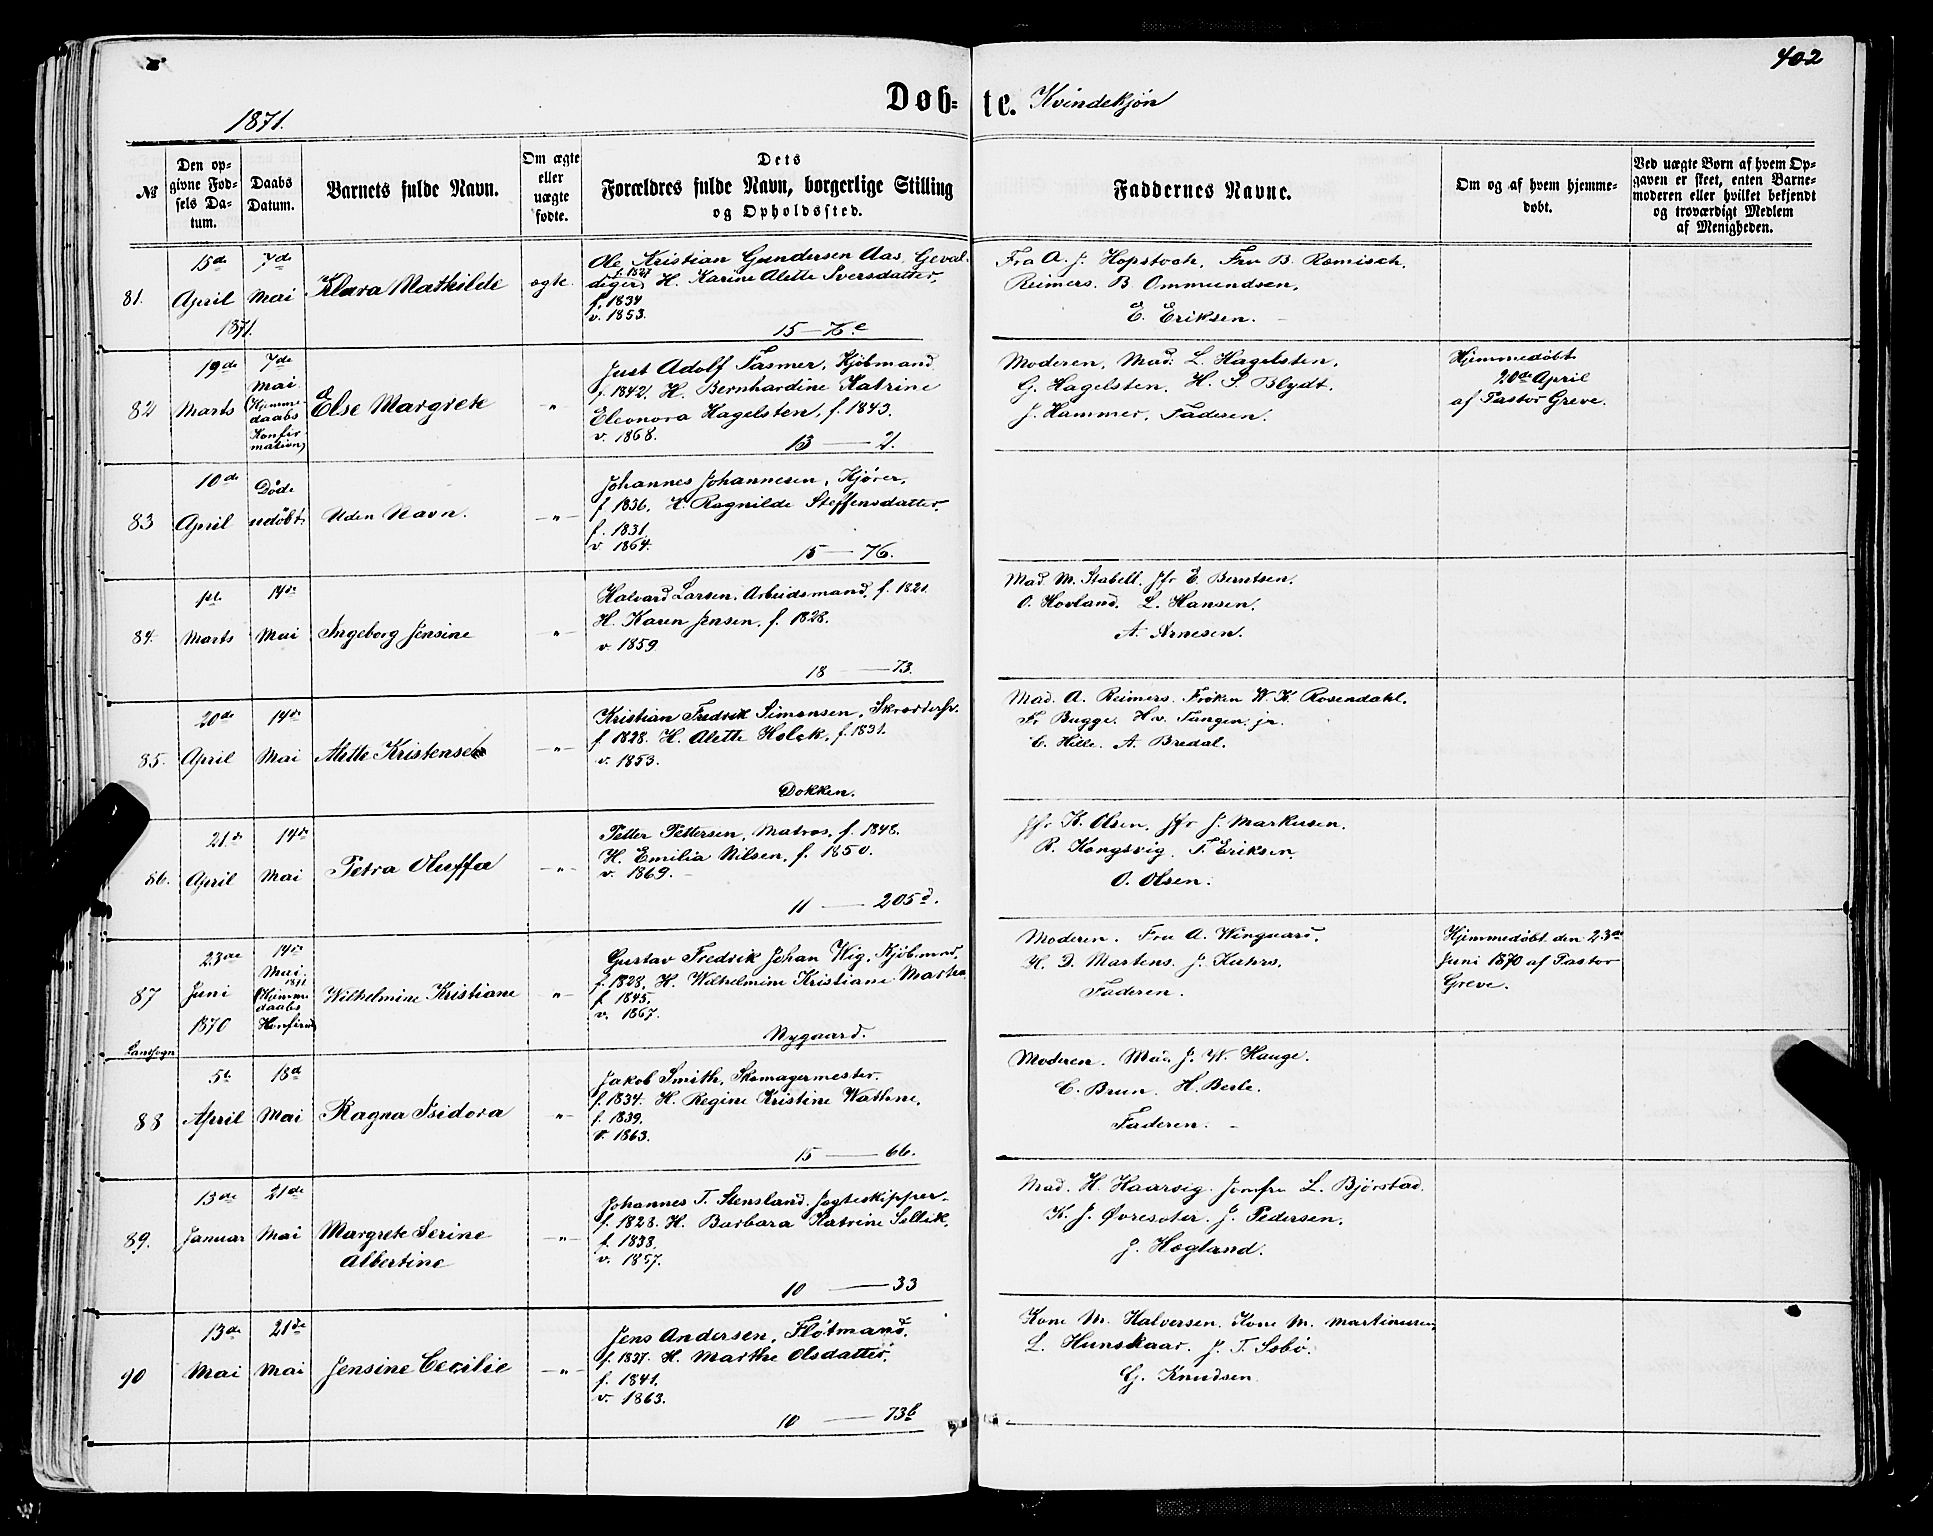 402
Døb-te. Kvindekjøn
1871.
№
Den opgivne Fødsels Datum.
Daabs Datum.
Barnets fulde Navn.
Om ægte eller uægte fødte.
Dets Forældres fulde Navn, borgerlige Stilling og Opholdssted.
Faddernes Navne.
Om og af hvem hjemmedøbt.
Ved uægte Børn af hvem Opgaven er skeet, enten Barnemoderen eller hvilket bekjendt og troværdigt Medlem af Menigheden.
81.
15de April 1871.
7de Mai
Klara Mathilde
ægte.
Ole Kristian Gundersen Aas, Geval-
diger, f. 1827 H. Karine Alette Iversdatter,
f. 1834
v. 1853.
15 — 76 c
Fru A. J. Hopstock, Fru B. Romisch,
Reimers. B Ommundsen,
E. Eriksen.
82
19de Marts
7de Mai (Hjemmedaabs Konfirmation)
Else Margrete
"
Just Adolf Fasmer, Kjøbmand
f. 1842. H. Bernhardine Katrine
Eleonora Hagelsten, f. 1843.
v. 1868.
13 — 2.
Moderen, Mad: L. Hagelsten,
G. Hagelsten, H. S. Blydt,
J. Hammer, Faderen.
Hjemmedøbt
20de April
af Pastor Greve.
83
10de April
Døde udøbt
Uden Navn.
"
Johannes Johannesen, Kjører,
f 1836. H. Ragnilde Steffensdatter,
f. 1831.
v. 1864.
15 — 76.
84.
1st. Marts
14de Mai
Ingeborg Jensine
"
Halvard Larsen, Arbeidsmand, f. 1821.
H. Karen Jensen, f. 1828.
v. 1859
18 — 73.
Mad. M. Stabell. Jfr E. Berntsen,
O. Hovland. L. Hansen,
A. Arnesen.
85.
20de April
14de Mai
Alette Kristense
"
Kristian Fredrik Simonsen, Skrædersv.
f. 1828. H. Alette Holck, f. 1831.
v. 1853.
Dokken.
Mad. A. Reimers. Frøken W. K. Rosendahl,
Fr Bugge. H. v. Tangen jr.
C. Hille. A. Bredal.
86.
21de April
14de Mai
Petra Oluffa
"
Petter Pettersen, Matros, f. 1848.
H. Emilia Nilsen, f. 1850.
v. 1869.
11 — 205 d.
Jfr K. Olsen, Jfr J. Markusen.
R. Kongsvig. T. Eriksen.
O. Olsen.
87
23de Juni 1870
14de Mai 1871 (Hjemmedaabs Konfirm)
Wilhelmine Kristiane
"
Gustav Fredrik Johan Wig, Kjøbmand,
f. 1828, H. Wilhelmine Kristiane Martha
f. 1845.
v. 1867.
Nygaard.
Moderen. Fru A. Wingaard,
H. D. Martens. J. Kuhrs.
Faderen.
Hjemmedøbt den 23de
Juni 1870 af Pastor
Greve.
Landsogn
88
5t. April
18d Mai
Ragna Isidora
"
Jakob Smith, Skomagermester.
f. 1834. H. Regine Kristine Wathne,
f. 1839.
v. 1863.
15 — 66.
Moderen. Mad. J. W. Hauge.
C. Brun. H. Berle.
Faderen.
89.
13de Januar
21de Mai
Margrete Serine
Albertine
"
Johannes T. Stensland, Jagteskipper.
f. 1828. H. Barbara Katrine Sellik,
f. 1833.
v. 1857.
10 — 33
Mad. H. Haarvig. Jomfru L. Bjørstad.
K. J. Øvresoter. J. Pedersen,
J. Hogland.
90
13de Mai
21de Mai
Jensine Cecilie
"
Jens Andersen, Fløtmand.
f. 1837. H. Marthe Olsdatter,
f. 1841.
v. 1863.
10 — 73 b
Kone M. Halversen. Kone M. Martinusen,
L. Hunskaar. J. T. Sebø.
G. Knudsen